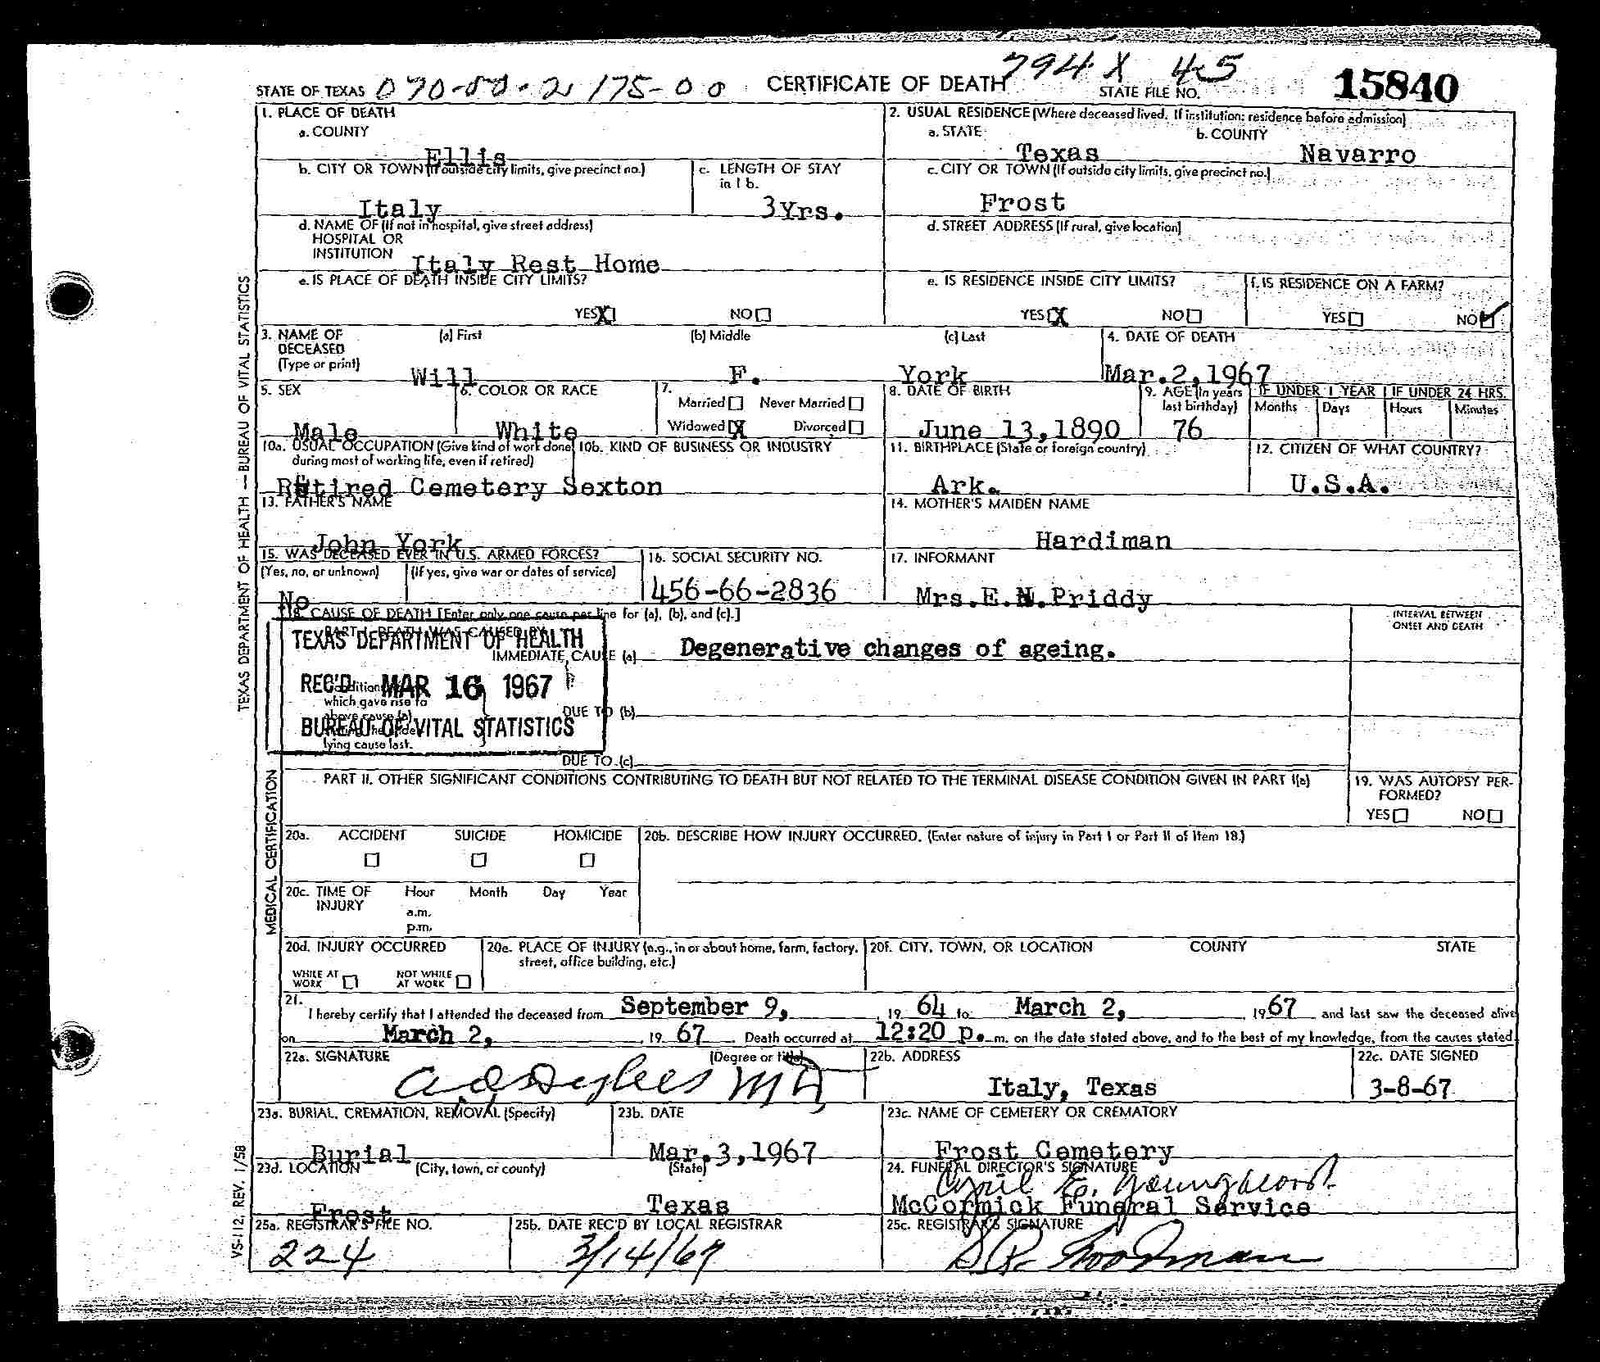 794 X 45
STATE OF TEXAS 070-00-2 175-00 CERTIFICATE OF DEATH STATE FILE NO. 15840
1. PLACE OF DEATH
a. COUNTY
Ellis
2. USUAL RESIDENCE (Where deceased lived. If institution: residence before admission)
a. STATE b. COUNTY
Texas Navarro
b. CITY OR TOWN (If outside city limits, give precinct no.)
Italy
c. LENGTH OF STAY
in 1 b.
3Yrs.
c. CITY OR TOWN (If outside city limits, give precinct no.)
Frost
d. NAME OF (If not in hospital, give street address)
HOSPITAL OR
INSTITUTION Italy Rest Home
d. STREET ADDRESS (If rural, give location)
e. IS PLACE OF DEATH INSIDE CITY LIMITS?
YES X NO
e. IS RESIDENCE INSIDE CITY LIMITS?
YES X NO
f. IS RESIDENCE ON A FARM?
YES NO
3. NAME OF (a) First (b) Middle (c) Last
DECEASED
(Type or print)
Will F. York
4. DATE OF DEATH
Mar.2,1967
5. SEX
Male
6. COLOR OR RACE
White
7.
Married Never Married
Widowed X Divorced
8. DATE OF BIRTH
June 13,1890
9. AGE (In years
last birthday)
76
IF UNDER 1 YEAR IF UNDER 24 HRS.
Months Days Hours Minutes
10a. USUAL OCCUPATION (Give kind of work done
during most of working life, even if retired)
10b. KIND OF BUSINESS OR INDUSTRY
Retired Cemetery Sexton
11. BIRTHPLACE (State or foreign country)
Ark.
12. CITIZEN OF WHAT COUNTRY?
U.S.A.
13. FATHER'S NAME
John York
14. MOTHER'S MAIDEN NAME
Hardiman
15. WAS DECEASED EVER IN U.S. ARMED FORCES?
(Yes, no, or unknown) (If yes, give war or dates of service)
No
16. SOCIAL SECURITY NO.
456-66-2836
17. INFORMANT
Mrs.E.N.Priddy
18. CAUSE OF DEATH [Enter only one cause per line for (a), (b), and (c).]
INTERVAL BETWEEN
ONSET AND DEATH
PART I. DEATH WAS CAUSED BY
IMMEDIATE CAUSE (a) Degenerative changes of ageing.
TEXAS DEPARTMENT OF HEALTH
REC'D MAR 16 1967
BUREAU OF VITAL STATISTICS
Conditions
which gave rise to
above cause (a)
lying cause last.
DUE TO (b)
DUE TO (c)
PART II. OTHER SIGNIFICANT CONDITIONS CONTRIBUTING TO DEATH BUT NOT RELATED TO THE TERMINAL DISEASE CONDITION GIVEN IN PART I(a)
19. WAS AUTOPSY PER-
FORMED?
YES NO
20a. ACCIDENT SUICIDE HOMICIDE
20b. DESCRIBE HOW INJURY OCCURRED. (Enter nature of injury in Part I or Part II of Item 18.)
20c. TIME OF Hour Month Day Year
INJURY a.m.
p.m.
20d. INJURY OCCURRED
WHILE AT
WORK
NOT WHILE
AT WORK
20e. PLACE OF INJURY (e.g., in or about home, farm, factory,
street, office building, etc.)
20f. CITY, TOWN, OR LOCATION COUNTY STATE
21.
I hereby certify that I attended the deceased from September 9, 1964 to March 2, 1967 and last saw the deceased alive
on March 2, 1967. Death occurred at 12:20 p. m. on the date stated above, and to the best of my knowledge, from the causes stated
22a. SIGNATURE (Degree or title)
MD
22b. ADDRESS
Italy, Texas
22c. DATE SIGNED
3-8-67
23a. BURIAL, CREMATION, REMOVAL (Specify)
Burial
23b. DATE
Mar.3,1967
23c. NAME OF CEMETERY OR CREMATORY
Frost Cemetery
23d. LOCATION (City, town, or county) (State)
Frost Texas
24. FUNERAL DIRECTOR'S SIGNATURE
McCormick Funeral Service
25a. REGISTRAR'S FILE NO.
224
25b. DATE REC'D BY LOCAL REGISTRAR
3/14/67
25c. REGISTRAR'S SIGNATURE
TEXAS DEPARTMENT OF HEALTH — BUREAU OF VITAL STATISTICS
MEDICAL CERTIFICATION
VS-112, REV. 1/58